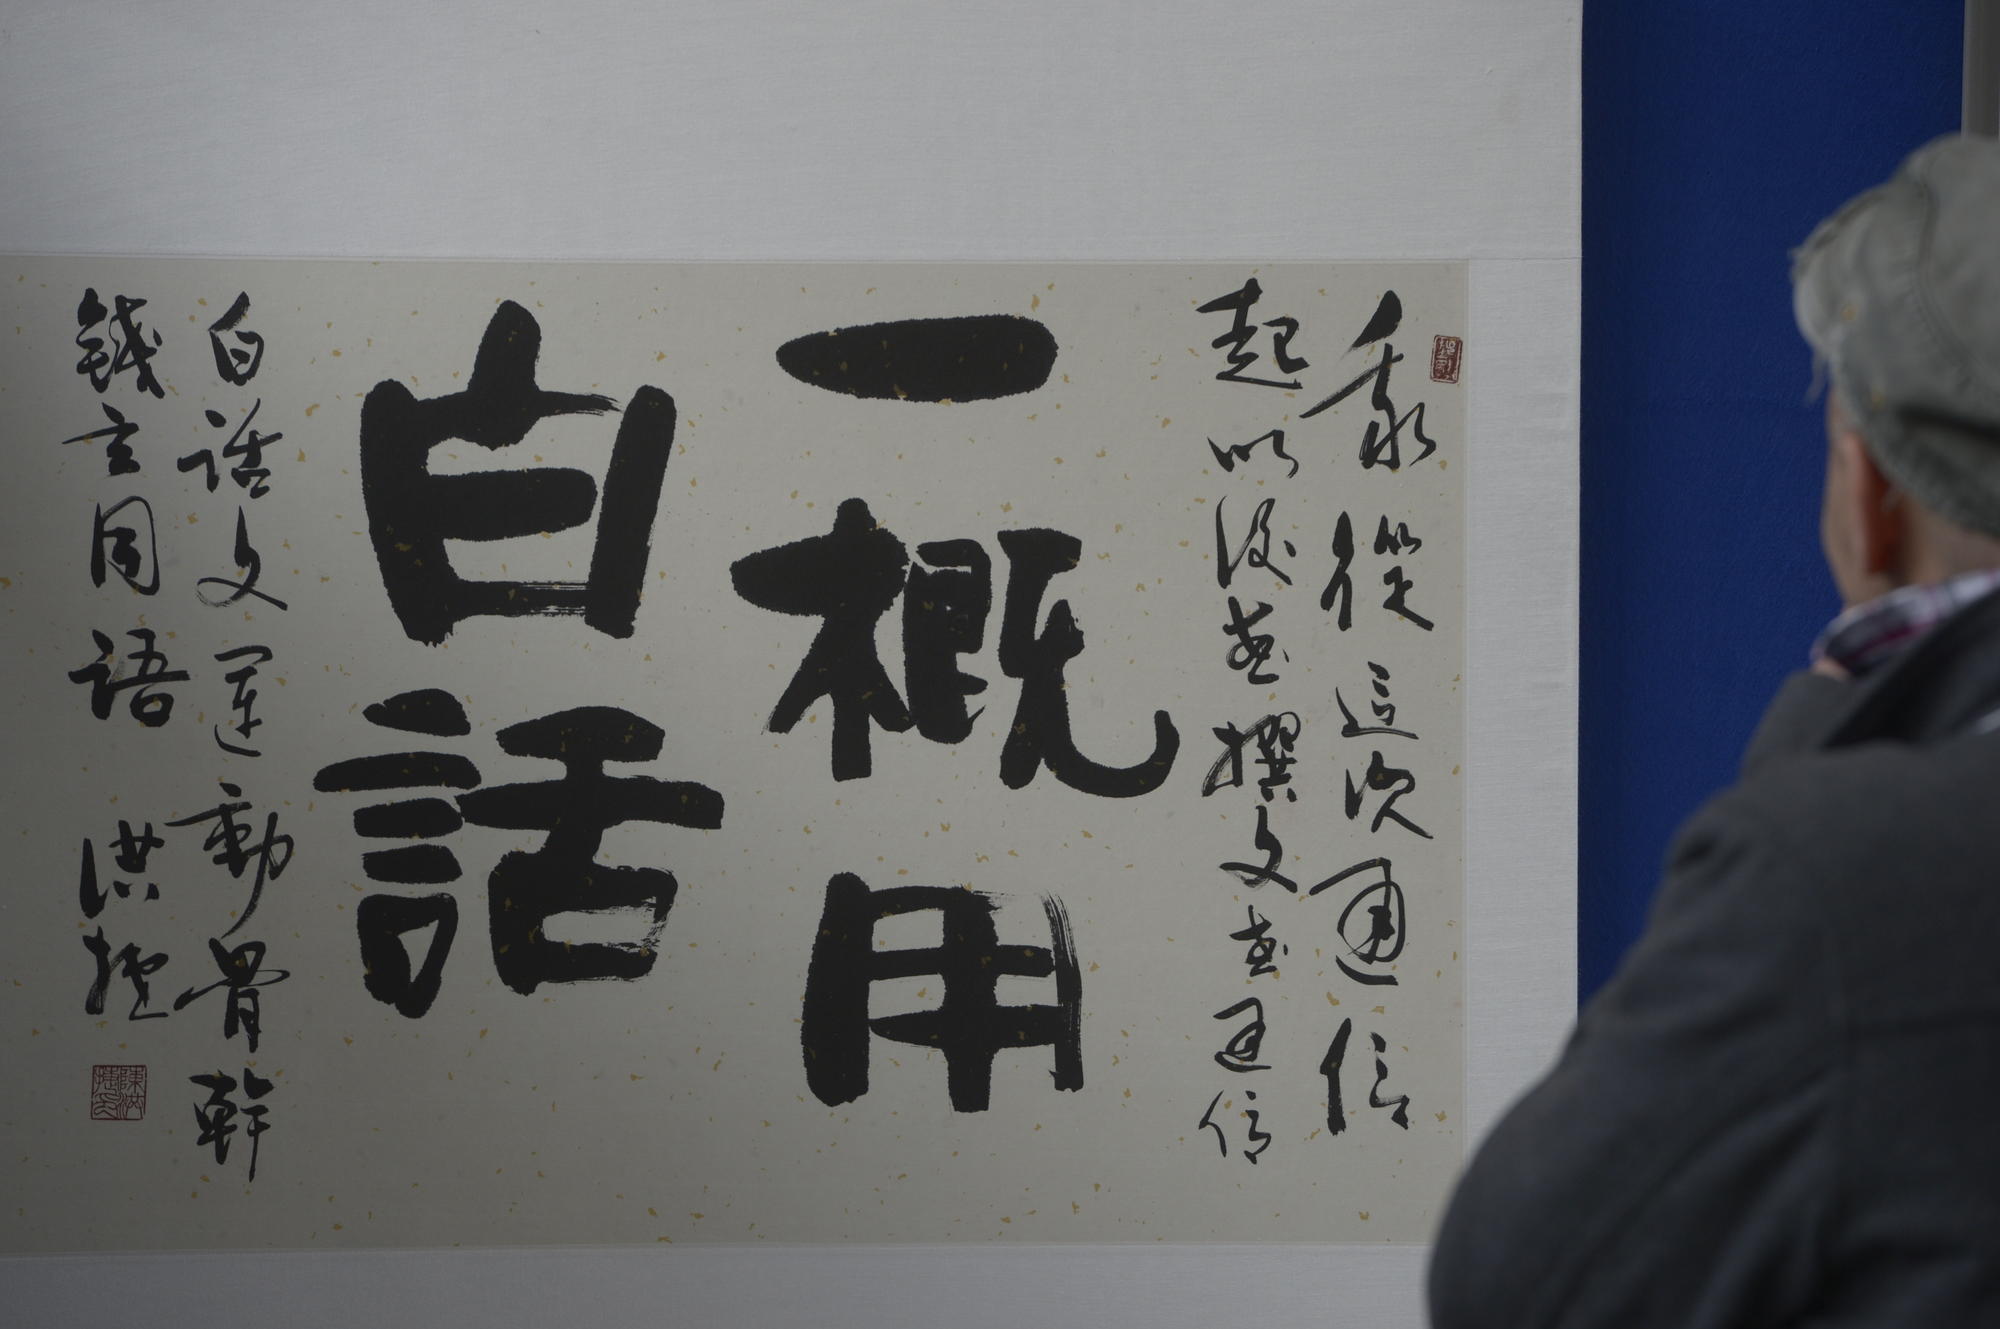 我從這次通信
起以後或撰文或通信
一概用
白話
白話文運動骨幹
錢玄同語 洪捷
陳洪捷印